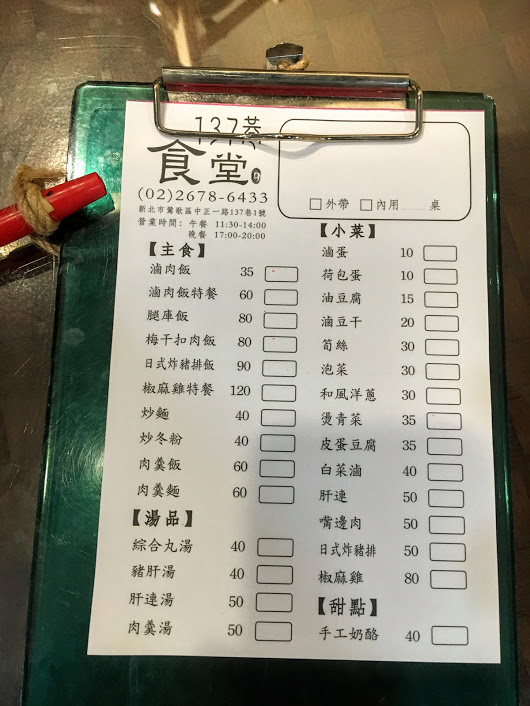 137巷
食堂
(02)2678-6433
新北市鶯歌區中正一路137巷1號
營業時間: 午餐 11:30-14:00
晚餐 17:00-20:00
□外帶 □內用 桌
【主食】
滷肉飯 35
滷肉飯特餐 60
腿庫飯 80
梅干扣肉飯 80
日式炸豬排飯 90
椒麻雞特餐 120
炒麵 40
炒冬粉 40
肉羹飯 60
肉羹麵 60
【湯品】
綜合丸湯 40
豬肝湯 40
肝連湯 50
肉羹湯 50
【小菜】
滷蛋 10
荷包蛋 10
油豆腐 15
滷豆干 20
筍絲 30
泡菜 30
和風洋蔥 30
燙青菜 35
皮蛋豆腐 35
白菜滷 40
肝連 50
嘴邊肉 50
日式炸豬排 50
椒麻雞 80
【甜點】
手工奶酪 40